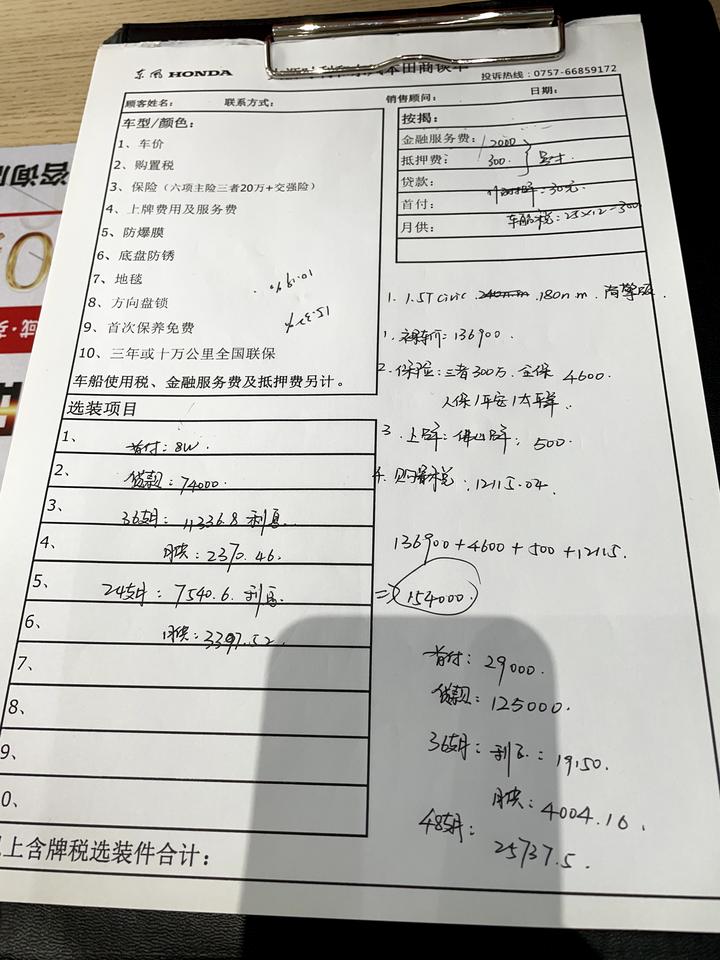 东风 HONDA
本田商谈单
投诉热线：0757-66859172
顾客姓名：
联系方式：
销售顾问：
日期：
车型/颜色：
1、车价
2、购置税
3、保险（六项主险三者20万+交强险）
4、上牌费用及服务费
5、防爆膜
6、底盘防锈
7、地毯
8、方向盘锁
9、首次保养免费
10、三年或十万公里全国联保
车船使用税、金融服务费及抵押费另计。
10.19%
15.33%
按揭：
金融服务费：2000
抵押费：300.
贷款：
首付：30元
月供：车船税：25×12=300
1. 1.5T Civic 240n.m .180n.m.
1. 裸车价：136900.
2. 保险：三者300万. 全保 4600.
人保/平安/太平洋.
3. 上牌：佛山牌：500.
4. 购置税：12115.04.
136900+4600+500+12115.
=>154000.
首付：29000.
贷款：125000.
36期：利息：19150.
月供：4004.16.
48期：25737.5.
选装项目
1、首付：8W.
2、贷款：74000.
3、36期：11336.8 利息.
4、月供：2370.46.
5、24期：7540.6. 利息.
6、月供：3397.52.
7、
8、
9、
0、
上含牌税选装件合计：
咨询